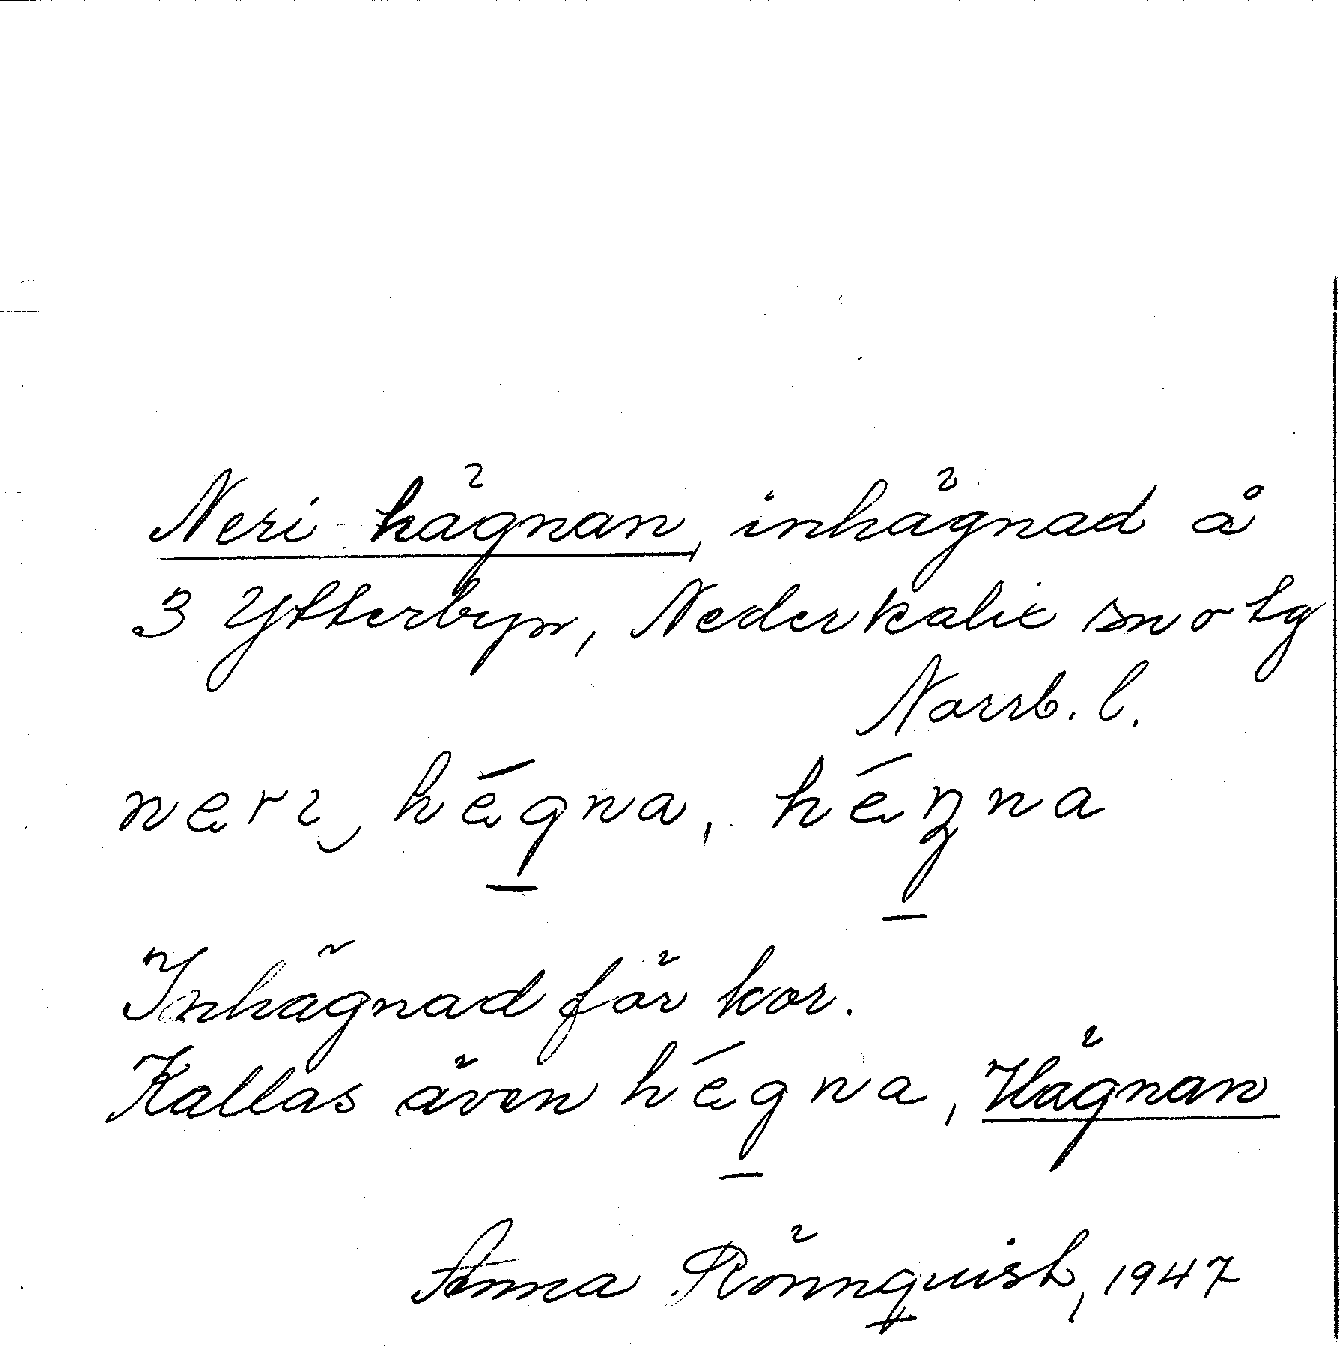 Neri hägnan, inhägnad å
3 Ytterbyn, Nederkalix sn o tg
Norrb. l.
neri, hégna, héʒna
Inhägnad för kor.
Kallas även hégna, Hägnan
Anna Rönnquist, 1947